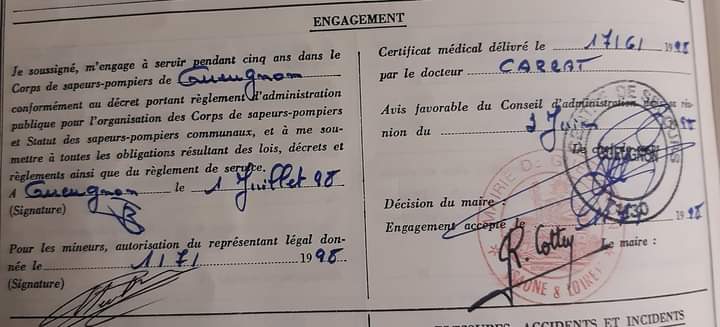 ENGAGEMENT
Je soussigné, m'engage à servir pendant cinq ans dans le
Corps de sapeurs-pompiers de Gueugnon
conformément au décret portant règlement d'administration
publique pour l'organisation des Corps de sapeurs-pompiers
et Statut des sapeurs-pompiers communaux, et à me sou-
mettre à toutes les obligations résultant des lois, décrets et
règlements ainsi que du règlement de service.
A Gueugnon le 1 Juillet 98
(Signature)
Pour les mineurs, autorisation du représentant légal don-
née le 1/7/ 1998
(Signature)
Certificat médical délivré le 17/6/ 1998
par le docteur CARRAT
Avis favorable du Conseil d'administration
nion du 3 Juin 98
CENTRE DE SECOURS
GUEUGNON
71130
Décision du maire :
MAIRIE DE
Engagement accepté le 1998
R. Cottey
Le maire :
SAONE & LOIRE
ACCIDENTS ET INCIDENTS